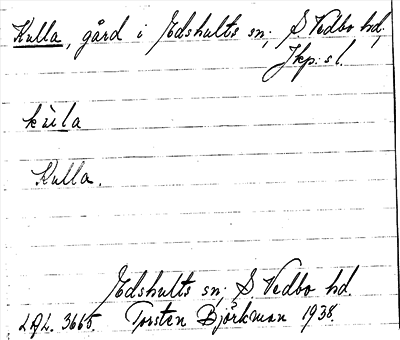 Kulla, gård i Edshults sn, S. Vedbo hd,
Jkp:s l.
kùla
Kulla.
Edshults sn, S. Vedbo hd.
LAL. 3665. Torsten Björkman 1938.